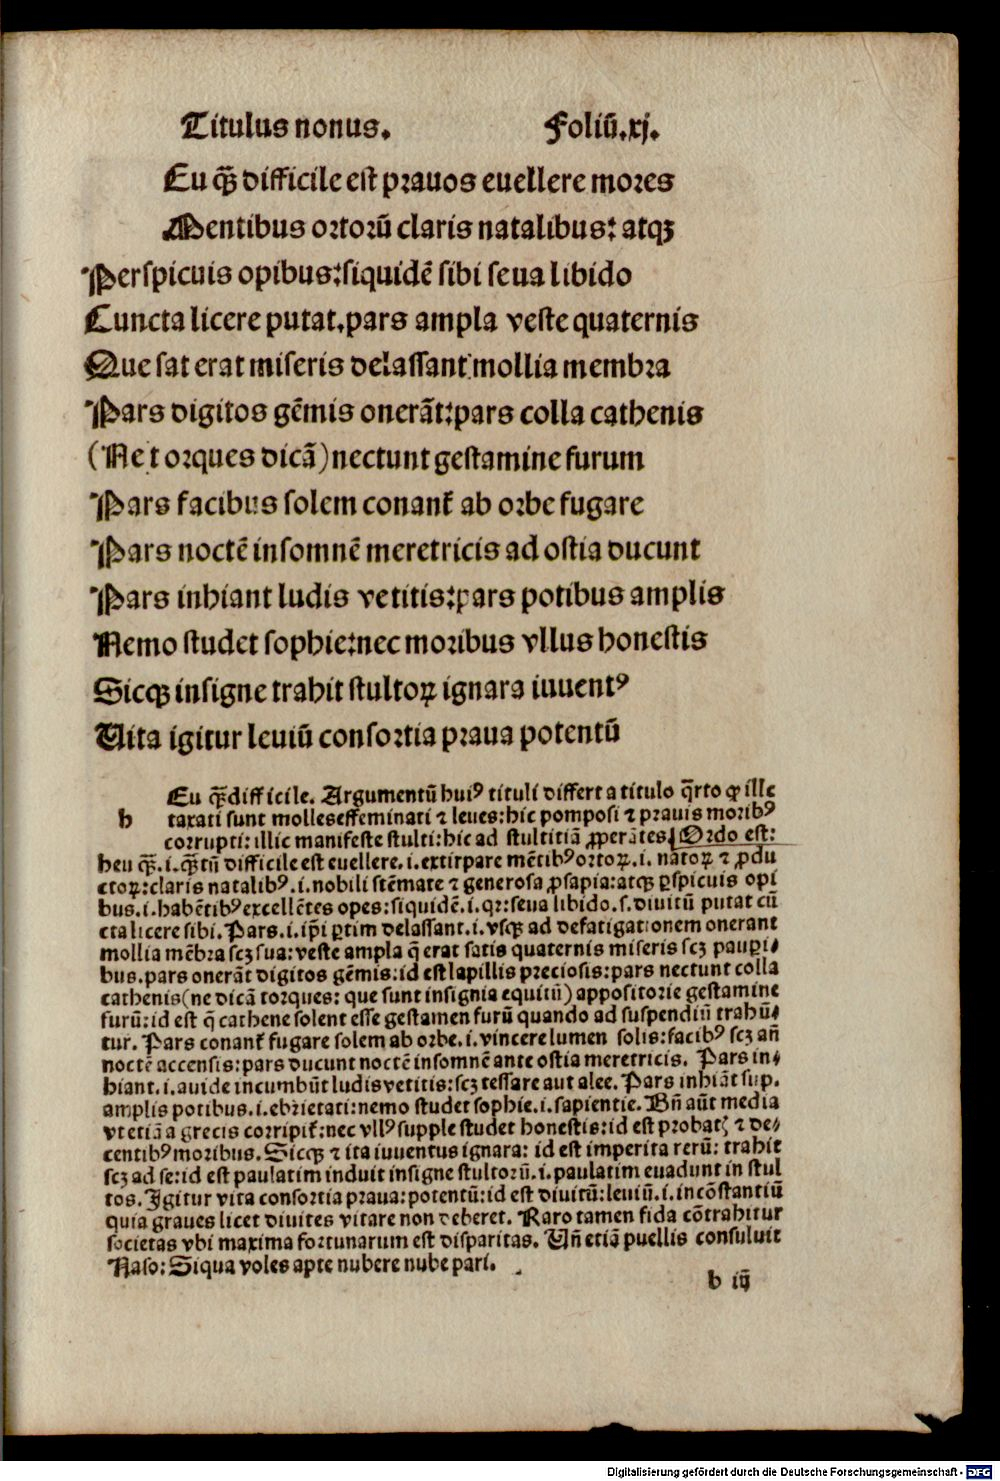 Titulus nonus. Foliū.xj.
Eu q̄ꝫ difficile est prauos euellere mores
Mentibus ortorū claris natalibus: atqꝫ
Perspicuis opibus:siquidē sibi seua libido
Cuncta licere putat.pars ampla veste quaternis
Que sat erat miseris delassant mollia membra
Pars digitos gēmis onerāt:pars colla cathenis
(Ne torques dicā)nectunt gestamine furum
Pars facibus solem conanť ab orbe fugare
Pars noctē insomnē meretricis ad ostia ducunt
Pars inhiant ludis vetitis:pars potibus amplis
Nemo studet sophie:nec moribus vllus honestis
Sicqꝫ insigne trahit stultoꝝ ignara iuuentꝰ
Uita igitur leuiū consortia praua potentū
Eu q̄ꝫ difficile. Argumentū huiꝰ tituli differt a titulo q̄rto ꝙ ille
h taxati sunt molles effeminati ⁊ leues: hic pomposi ⁊ prauis moribꝰ
corrupti: illic manifeste stulti: hic ad stultitiā ꝓperātes. Ordo est:
heu q̄ꝫ.i.q̄ꝫtū difficile est euellere.i.extirpare mētibꝰ ortoꝝ.i. natoꝝ ⁊ ꝓdu
ctoꝝ: claris natalibꝰ.i.nobili stēmate ⁊ generosa ꝓsapia: atqꝫ ꝑspicuis opi
bus.i.habētibꝰ excellētes opes: siquidē.i.qꝛ: seua libido.s.diuitū putat cū
cta licere sibi. Pars.i.ip̄i ꝑtim delassant.i.vsqꝫ ad defatigationem onerant
mollia mēbra scꝫ sua: veste ampla q̄ erat satis quaternis miseris scꝫ pauꝑi-
bus. pars onerāt digitos gēmis: id est lapillis preciosis: pars nectunt colla
cathenis(ne dicā torques: que sunt insignia equitū) appositorie gestamine
furū: id est q̄ cathene solent esse gestamen furū quando ad suspendiū trahū-
tur. Pars conanť fugare solem ab orbe.i.vincere lumen solis: facibꝰ scꝫ añ
noctē accensis: pars ducunt noctē insomnē ante ostia meretricis. Pars in-
hiant.i.auide incumbūt ludis vetitis: scꝫ tessare aut alee. Pars inhiāt sup.
amplis potibus.i.ebrietati: nemo studet sophie.i.sapientie. Bñ aūt media
vt etiā a grecis corripiť: nec vllꝰ supple studet honestis: id est probatꝭ ⁊ de-
centibꝰ moribus. Sicqꝫ ⁊ ita iuuentus ignara: id est imperita rerū: trahit
scꝫ ad se: id est paulatim induit insigne stultorū.i.paulatim euadunt in stul
tos. Igitur vita consortia praua: potentū: id est diuitū: leuiū.i.incōstantiū
quia graues licet diuites vitare non deberet. Raro tamen fida cōtrahitur
societas vbi maxima fortunarum est disparitas. Uñ etiā puellis consuluit
Naso: Siqua voles apte nubere nube pari.
b iij
Digitalisierung gefördert durch die Deutsche Forschungsgemeinschaft - DFG